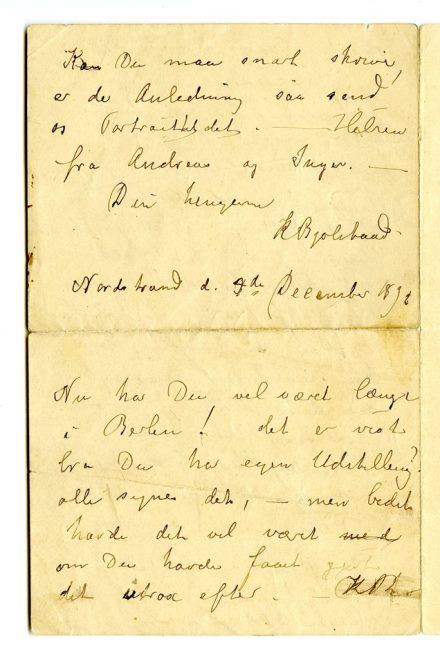 Kan Du maa snart skrive,
er de Anledning saa send
os Portraittet det. — Hilsen
fra Andreas og Inger. —
Din hengivne
K Bjølstaad
Nordstrand d. 4de December 189
Nu har Du vel været længe
i Berlin! det er vist
bra Du har egen Udstilling?
alle synes det, — men bedst
havde det vel været med
om Du havde faaet gjort
det strax efter. —